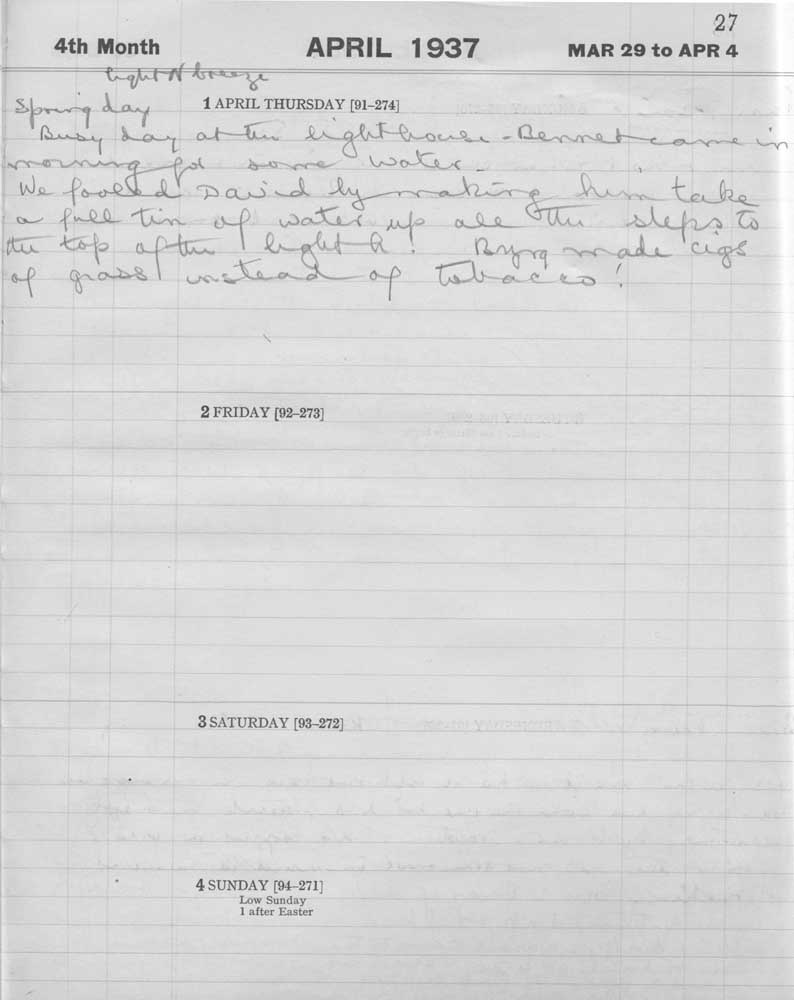 27
4th Month APRIL 1937 MAR 29 to APR 4
light N breeze
Spring day 1 APRIL THURSDAY [91–274]
Busy day at the lighthouse - Bennet came in
morning for some water.
We fooled David by making him take
a full tin of water up all the steps to
the top of the light h! made cigs
of grass instead of tobacco!
2 FRIDAY [92–273]
3 SATURDAY [93–272]
4 SUNDAY [94–271]
Low Sunday
1 after Easter